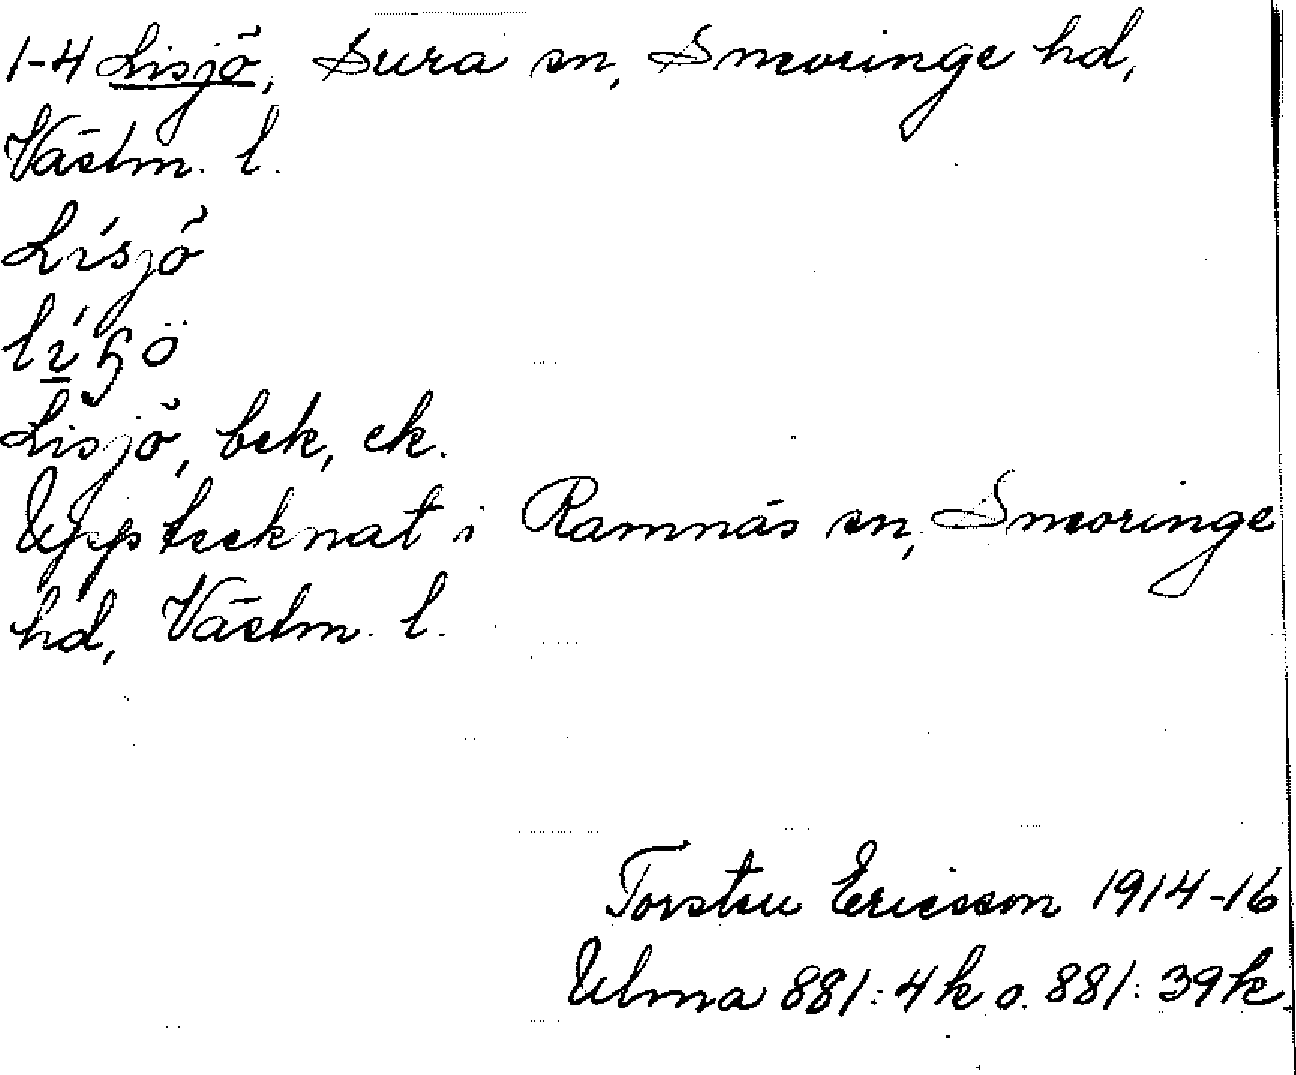 1-4 Lisjö, Sura sn, Snevringe hd,
Västm. l.
Lisjö
Lisjö, bek, ek.
Upptecknat i Ramnäs sn, Snevringe
hd, Västm. l.
Torsten Ericsson 1914-16
Ulma 881:4k o. 881:39k.